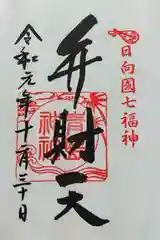 日向國七福神
弁財天
令和元年十一月三十日